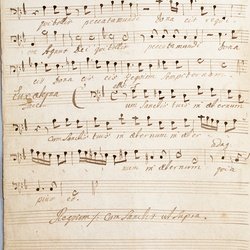 qui tollis peccata mundi dona eis requi-
em Agnus Dei qui tollis peccata mundi dona
eis dona eis eis requiem sempiternam.
Lux aeterna
cum Sanctis tuis in aeternum
cum Sanctis tuis in aeternum in ae-
num in aeternum quia
pius es.
Requiem f: Cum Sanctis ut supra.